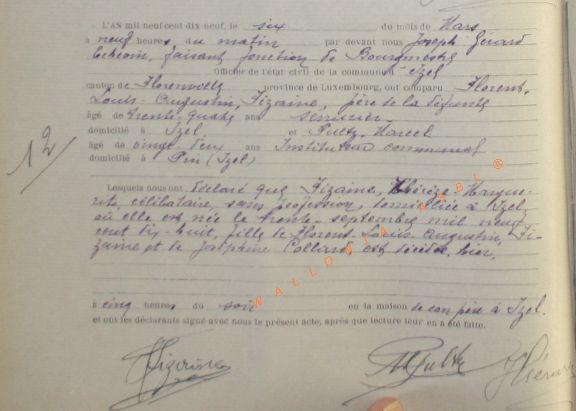 L'AN mil neuf cent dix-neuf, le six du mois de Mars
à neuf heures du matin par devant nous Joseph Gérard
Echevin, faisant fonction de Bourgmestre
Officier de l'état civil de la commune d' Izel
canton de Florenville province de Luxembourg, ont comparu Florent,
Louis-Augustin, Fizaine, père de la défunte
âgé de trente-quatre ans serrurier
domicilié à Izel et Pultz, Marcel
âgé de vingt deux ans Instituteur communal
domicilié à Pin (Izel)
12
Lesquels nous ont, déclaré que Fizaine, Thérèse-Margue-
rite, célibataire, sans profession, domiciliée à Izel,
où elle est née le trente-septembre mil neuf
cent dix-huit, fille de Florent-Louis-Augustin, Fi-
zaine et de Joséphine Collard est décédée hier,
à cinq heures du soir en la maison de son père à Izel.
et ont les déclarants signé avec nous le présent acte, après que lecture leur en a été faite.
Fizaine MPultz JGérard
WALLONIA ASBL ®